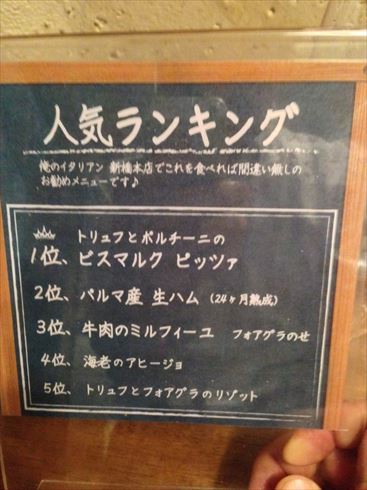 人気ランキング
俺のイタリアン 新橋本店でこれを食べれば間違い無しの
お勧めメニューです♪
トリュフとポルチーニの
1位、ビスマルク ピッツァ
2位、パルマ産 生ハム (24ヶ月熟成)
3位、牛肉のミルフィーユ フォアグラのせ
4位、海老のアヒージョ
5位、トリュフとフォアグラのリゾット